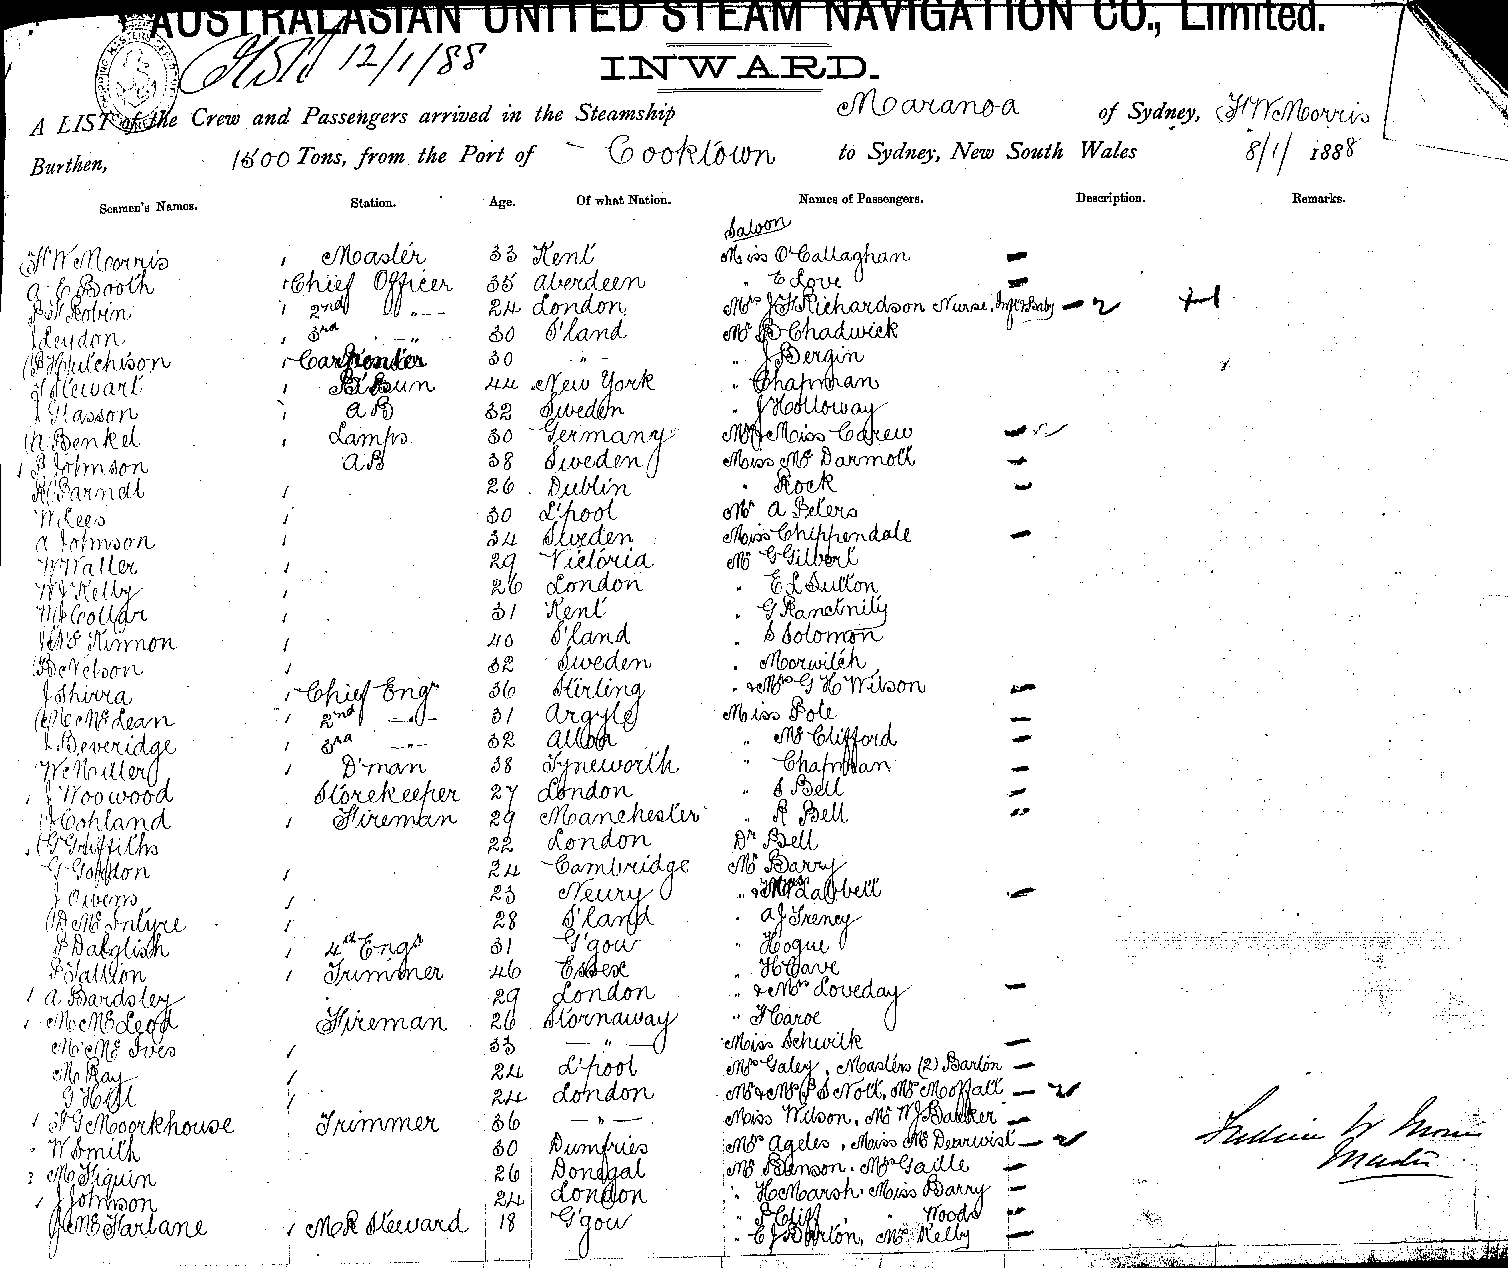 AUSTRALASIAN UNITED STEAM NAVIGATION CO., Limited.
12/1/88
INWARD.
A LIST of the Crew and Passengers arrived in the Steamship Maranoa of Sydney, H W Morris
Burthen, 1500 Tons, from the Port of Cooktown to Sydney, New South Wales 8/1/ 1888
Seamen's Names. Station. Age. Of what Nation. Names of Passengers. Description. Remarks.
Saloon
H W Morris Master 33 Kent Miss O'Callaghan
A E Booth Chief Officer 35 Aberdeen " E Love
Robin 2nd " 24 London Mrs J H Richardson Nurse, Inft & Baby
J Leydon 3rd " 30 S'land Mr B Chadwick
Hutchison Carpenter 30 " " J Bergin
Stewart 44 New York " Chapman
J Glasson AB 32 Sweden " J Holloway
Benkel Lamps 30 Germany Mr & Miss Carew
B Johnson AB 38 Sweden Miss Mc Darmott
Barndt 26 Dublin " Rock
W Lees 30 L'pool Mr A Peters
A Johnson 34 Sweden Miss Chippendale
W Waller 29 Victoria Mr G Gilbert
W J Kelly 26 London " E L Sutton
Collar 31 Kent " G
Kinnon 40 S'land " S Solomon
Nelson 32 Sweden " Morwitch
J Shirra Chief Engr 36 Stirling " & Mrs G H Wilson
Mc Lean 2nd " 31 Argyle Miss Pole
J Beveridge 3rd " 32 Alloa " Mc Clifford
W Miller D'man 38 Tyneworth " Chapman
J Woowood Storekeeper 27 London " S Bell
J Cohland Fireman 29 Manchester " R Bell
G Griffiths 22 London Dr Bell
G Gordon 24 Cambridge Mr Barry
J Owens 23 Neury "
D Mc Intyre 28 S'land " A J Treney
P Dalglish 4th Engr 31 G'gow " Hogue
Trimmer 46 Essex " H Cave
A Bardsley 29 London " & Mrs Loveday
M McLeod Fireman 26 Stornaway " Haroe
M Mc Ives 33 " Miss Schwilk
M Ray 24 L'pool Mrs Galey, Masters (2) Barton
G Hill 24 London Mr & Mrs P S Nott, Mr Moffatt
H G Moorkhouse Trimmer 36 " Miss Wilson, Mr W J Barker
W Smith 30 Dumfries Mrs Ageles, Miss Mc Dearwist
M Figuin 26 Donegal Mr Benson, Mrs Gaille
J Johnson 24 London " H Marsh Miss Barry
J McFarlane M R Steward 18 G'gow " S Cliff, " Woods
" E J Barton, Mr Kelly
Master